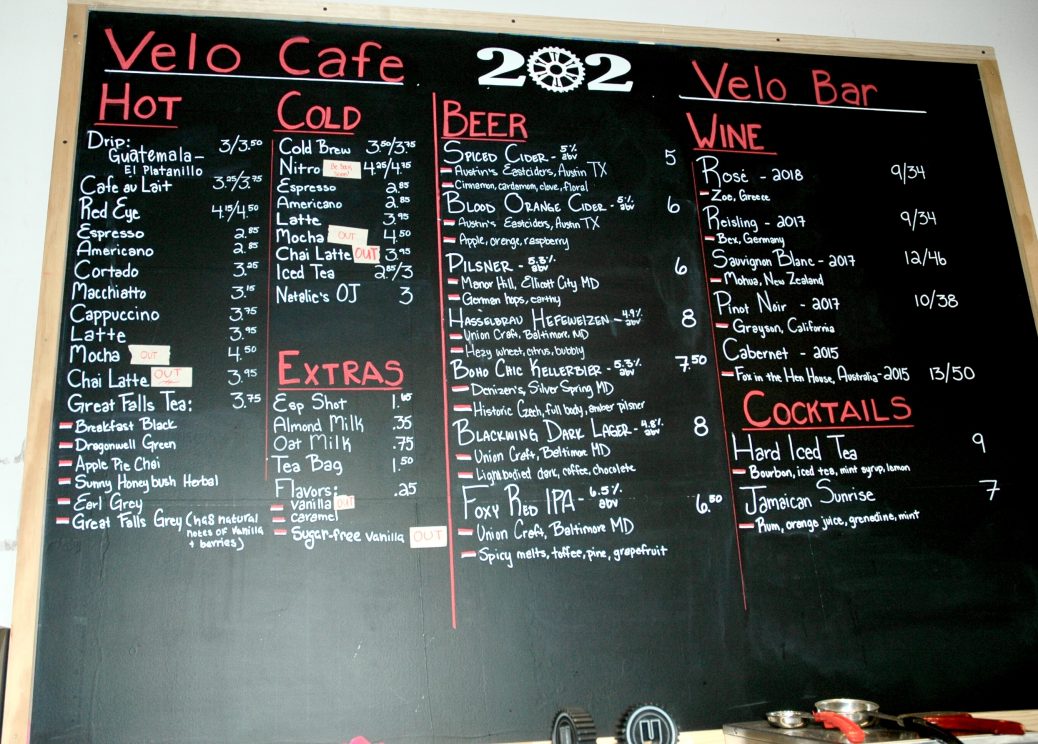 Velo Cafe
HOT
Drip: 3/3.50
Guatemala -
El Platanillo
Cafe au Lait 3.25/3.75
Red Eye 4.15/4.50
Espresso 2.85
Americano 2.85
Cortado 3.25
Macchiato 3.15
Cappuccino 3.75
Latte 3.95
Mocha OUT 4.50
Chai Latte OUT 3.95
Great Falls Tea: 3.75
Breakfast Black
Dragonwell Green
Apple Pie Chai
Sunny Honeybush Herbal
Earl Grey
Great Falls Grey (has natural
notes of vanilla
+ berries)
COLD
Cold Brew 3.50/3.75
Nitro Be Back Soon! 4.25/4.75
Espresso 2.85
Americano 2.85
Latte 3.95
Mocha OUT 4.50
Chai Latte OUT 3.95
Iced Tea 2.85/3
Natalie's OJ 3
EXTRAS
Esp Shot
Almond Milk .35
Oat Milk .75
Tea Bag 1.50
Flavors: .25
vanilla OUT
caramel
Sugar-free vanilla OUT
202
BEER
SPICED CIDER - 5% abv 5
Austin's Eastciders, Austin TX
Cinnamon, cardemom, clove, floral
BLOOD ORANGE CIDER - 5% abv 6
Austin's Eastciders, Austin TX
Apple, orange, raspberry
PILSNER - 5.3% abv 6
Manor Hill, Ellicott City MD
German hops, earthy
HASSELBRAU HEFEWEIZEN - 4.9% abv 8
Union Craft, Baltimore, MD
Hazy wheat, citrus, bubbly
BOHO CHIC KELLERBIER - 5.3% abv 7.50
Denizen's, Silver Spring MD
Historic Czech, full body, amber pilsner
BLACKWING DARK LAGER - 4.8% abv 8
Union Craft, Baltimore MD
Light bodied dark, coffee, chocolate
FOXY RED IPA - 6.5% abv 6.50
Union Craft, Baltimore MD
Spicy melts, toffee, pine, grapefruit
Velo Bar
WINE
Rosé - 2018 9/34
Zoe, Greece
Reisling - 2017 9/34
Bex, Germany
Sauvignon Blanc - 2017 12/46
Mohua, New Zealand
Pinot Noir - 2017 10/38
Grayson, California
Cabernet - 2015
Fox in the Hen House, Australia - 2015 13/50
COCKTAILS
Hard Iced Tea 9
Bourbon, iced tea, mint syrup, lemon
Jamaican Sunrise 7
Rum, orange juice, grenadine, mint
U